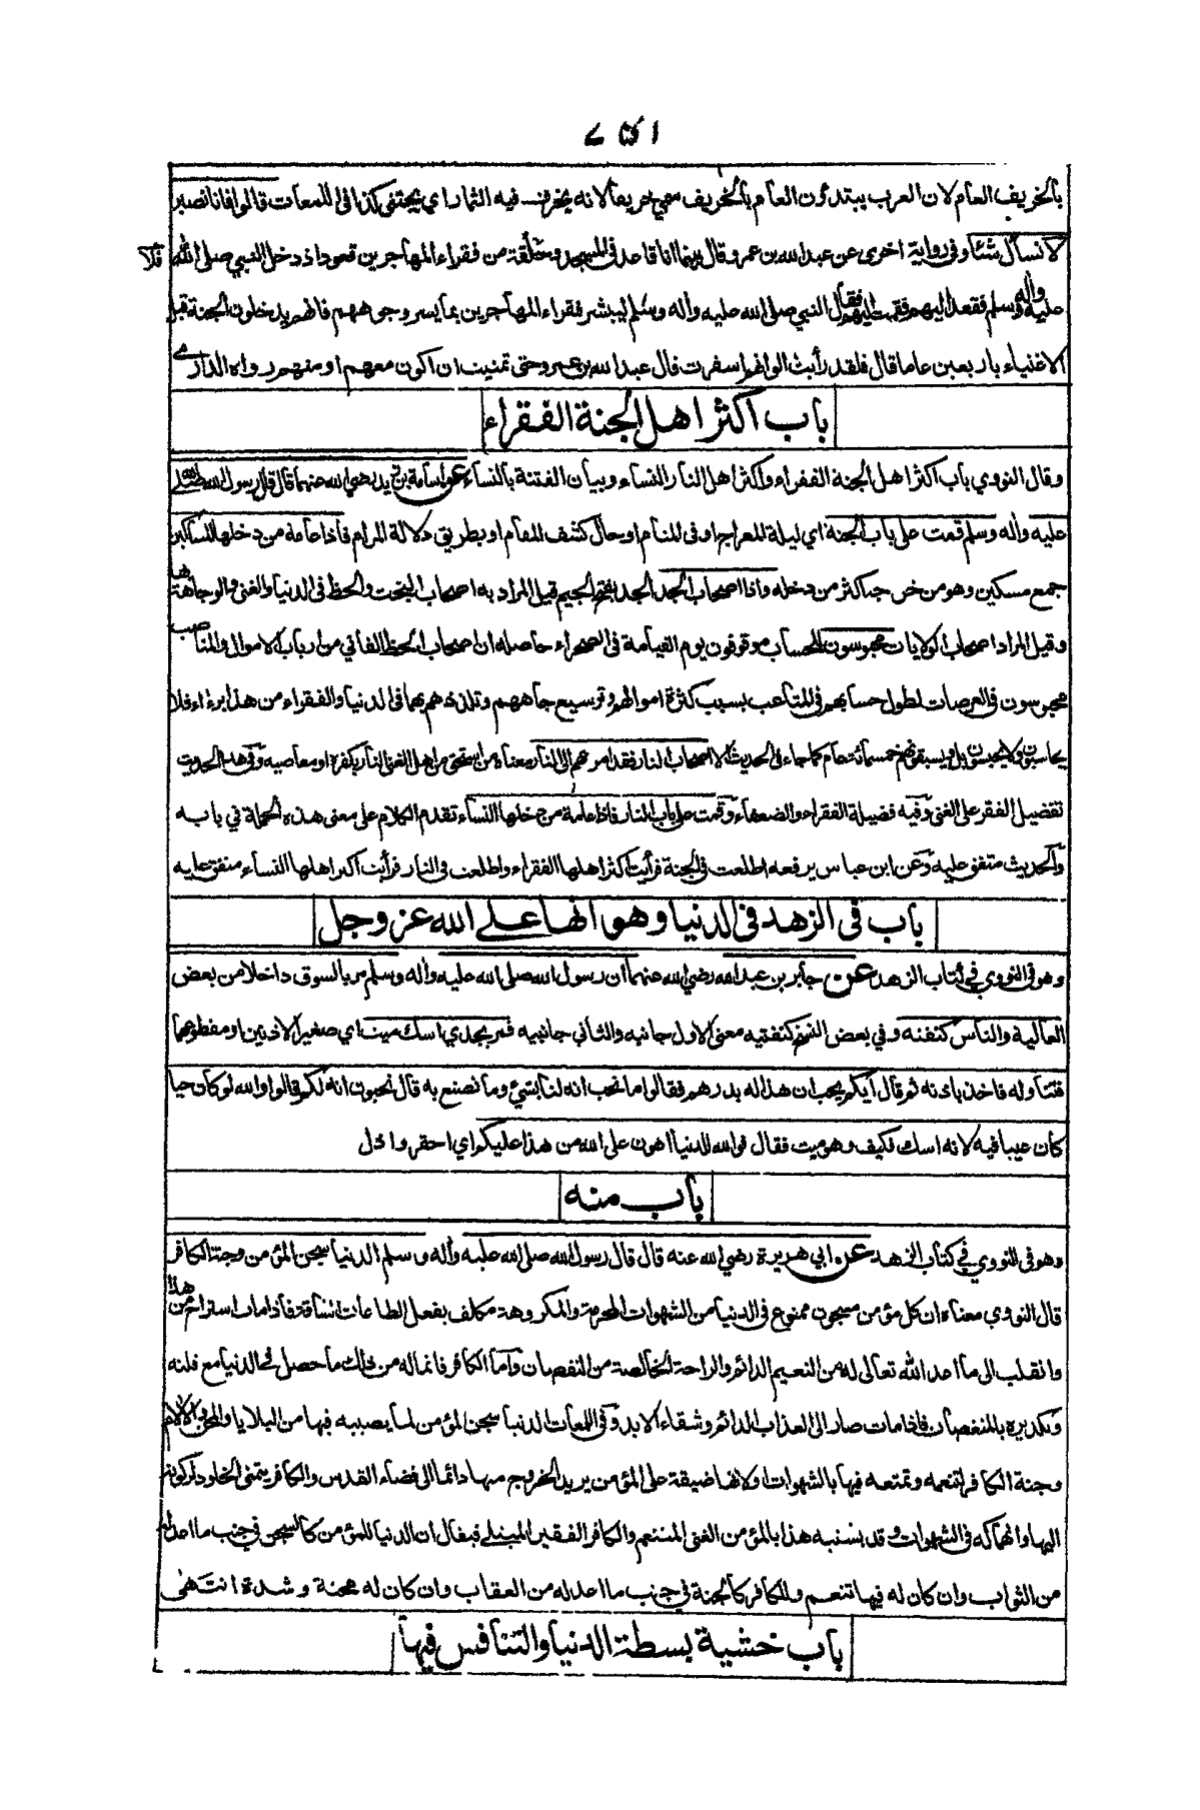 بالخريف العام لان العرب يبتدؤن العام بالخريف سمي خريفا لانه يخرف فيه الثمار اي يجتنى كذا في اللمعات قالوا فانا نصبر
لا نسأل شيئا وفي رواية اخرى عن عبد الله بن عمرو قال بينما انا قاعد في المسجد وحلقة من فقراء المهاجرين قعود اذ دخل النبي صلى الله
عليه وآله وسلم فقعد اليهم فقمت اليهم فقال النبي صلى الله عليه واله وسلم ليبشر فقراء المهاجرين بما يسر وجوههم فانهم يدخلون الجنة قبل
الاغنياء باربعين عاما قال فلقد رأيت الوانهم اسفرت قال عبد الله بن عمرو حتى تمنيت ان اكون معهم او منهم رواه الدارمي
باب اكثر اهل الجنة الفقراء
وقال النووي باب اكثر اهل الجنة الفقراء واكثر اهل النار النساء وبيان الفتنة بالنساء عن اسامة بن زيد رضي الله عنهما قال قال رسول الله صلى الله
عليه واله وسلم قمت على باب الجنة اي ليلة المعراج او في المنام او حال كشف المقام او بطريق دلالة المرام فاذا عامة من دخلها المساكين
جمع مسكين وهو من خرجه اكثر من دخله واذا اصحاب الجد الجد بفتح الجيم قيل المراد به اصحاب البخت والحظ في الدنيا والغنى والوجاهة
وقيل المراد اصحاب الولايات محبوسون للحساب موقوفون يوم القيامة في الصحراء حاصله ان اصحاب الحظ الفاني من ارباب الاموال والمناصب
محبوسون في العرصات لطول حسابهم في المتاعب بسبب كثرة اموالهم وتوسيع جاههم وتلذذهم بهما في الدنيا والفقراء من هذا برءاء فلا
يحاسبون ولا يحبسون بل ويسبقونهم خمسمائة عام كما جاء في الحديث الا اصحاب النار فقد امر بهم الى النار معناه من استحق من اهل الغنى النار بكفره او معاصيه وفي هذا الحديث
تفضيل الفقر على الغنى وفيه فضيلة الفقراء والضعفاء وقمت على باب النار فاذا عامة من دخلها النساء تقدم الكلام على معنى هذه الجملة في بابه
والحديث متفق عليه وعن ابن عباس يرفعه اطلعت في الجنة فرأيت اكثر اهلها الفقراء واطلعت في النار فرأيت اكثر اهلها النساء متفق عليه
باب في الزهد في الدنيا وهوانها على الله عز وجل
وهو في النووي في كتاب الزهد عن جابر بن عبد الله رضي الله عنهما ان رسول الله صلى الله عليه واله وسلم مر بالسوق داخلا من بعض
العالية والناس كنفته وفي بعض النسخ كنفتيه معنى الاول جانبه والثاني جانبيه فمر بجدي اسك ميت اي صغير الاذنين او مقطوعهما
فتناوله فاخذ باذنه ثم قال ايكم يحب ان هذا له بدرهم فقالوا ما نحب انه لنا بشيء وما نصنع به قال تحبون انه لكم قالوا والله لو كان حيا
كان عيبا فيه لانه اسك فكيف وهو ميت فقال فوالله للدنيا اهون على الله من هذا عليكم اي احقر واذل
باب منه
وهو في النووي في كتاب الزهد عن ابي هريرة رضي الله عنه قال قال رسول الله صلى الله عليه وآله وسلم الدنيا سجن المؤمن وجنة الكافر
قال النووي معناه ان كل مؤمن مسجون ممنوع في الدنيا من الشهوات المحرمة والمكروهة مكلف بفعل الطاعات الشاقة فاذا مات استراح من هذا
وانقلب الى ما اعد الله تعالى له من النعيم الدائم والراحة الخالصة من النقصان واما الكافر فانما له من ذلك ما حصل في الدنيا مع قلته
وتكديره بالمنغصات فاذا مات صار الى العذاب الدائم وشقاء الابد وفي اللمعات الدنيا سجن المؤمن لما يصيبه فيها من البلايا والمحن والآلام
وجنة الكافر لتنعمه وتمتعه فيها بالشهوات او لانها ضيقة على المؤمن يريد الخروج منها دائما الى فضاء القدس والكافر يتمنى الخلود لركونه
اليها وانهماكه في الشهوات وقد يشتبه هذا بالمؤمن الغني المتنعم والكافر الفقير المبتلى فيقال ان الدنيا للمؤمن كالسجن في جنب ما اعد له
من الثواب وان كان له فيها تنعم وللكافر كالجنة في جنب ما اعد له من العقاب وان كان له محنة وشدة انتهى
باب خشية بسطة الدنيا والتنافس فيها